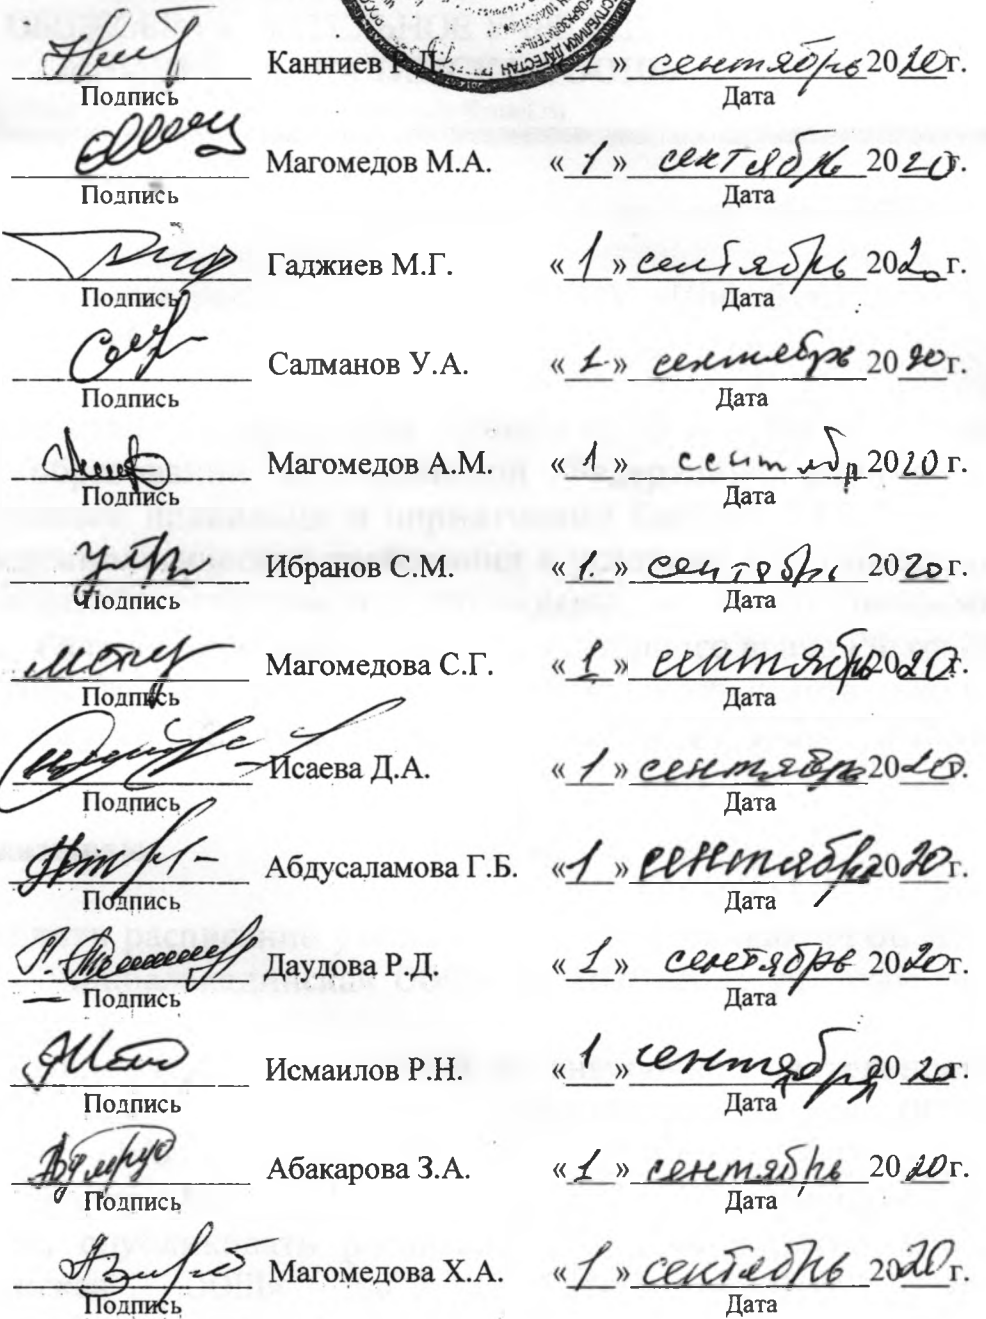 Канниев » сентябрь 2020г.
Подпись Дата
Магомедов М.А. « 1 » сентябрь 2020г.
Подпись Дата
Гаджиев М.Г. « 1 » сентябрь 2020г.
Подпись Дата
Салманов У.А. « 1 » сентябрь 2020г.
Подпись Дата
Магомедов А.М. « 1 » сентябр 2020г.
Подпись Дата
Ибранов С.М. « 1 » сентябрь 2020г.
Подпись Дата
Магомедова С.Г. « 1 » сентябрь 2020г.
Подпись Дата
Исаева Д.А. « 1 » сентябрь 2020г.
Подпись Дата
Абдусаламова Г.Б. « 1 » сентябрь 2020г.
Подпись Дата
Даудова Р.Д. « 1 » сентябрь 2020г.
Подпись Дата
Исмаилов Р.Н. « 1 » сентября 2020г.
Подпись Дата
Абакарова З.А. « 1 » сентябрь 2020г.
Подпись Дата
Магомедова Х.А. « 1 » сентябрь 2020г.
Подпись Дата